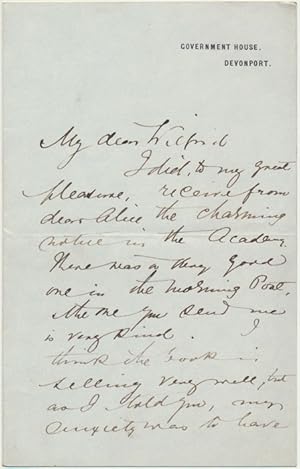 GOVERNMENT HOUSE.
DEVONPORT.
My dear Wilfrid
I did, to my great
pleasure, receive from
dear Alice the charming
notice in the Academy
There was a very good
one in the Morning Post.
the one you send me
is very kind. I
think the book is
selling very well, but
as I told you, my
anxiety was to have